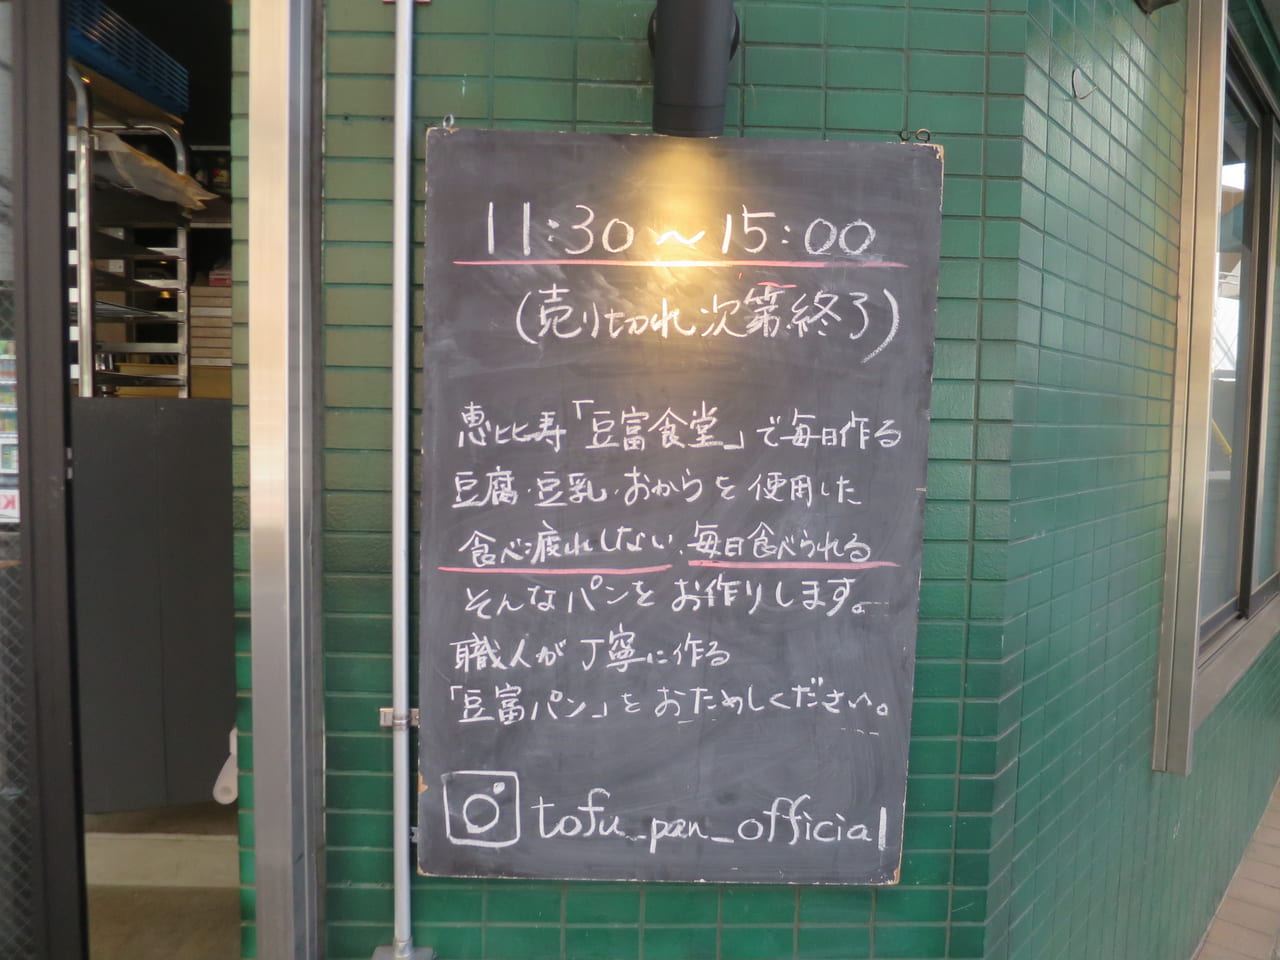 11:30～15:00
(売り切れ次第終了)
恵比寿「豆富食堂」で毎日作る
豆腐・豆乳・おからを使用した
食べ疲れしない、毎日食べられる
そんなパンをお作りします。
職人が丁寧に作る
「豆富パン」をおためしください。
tofu_pan_official